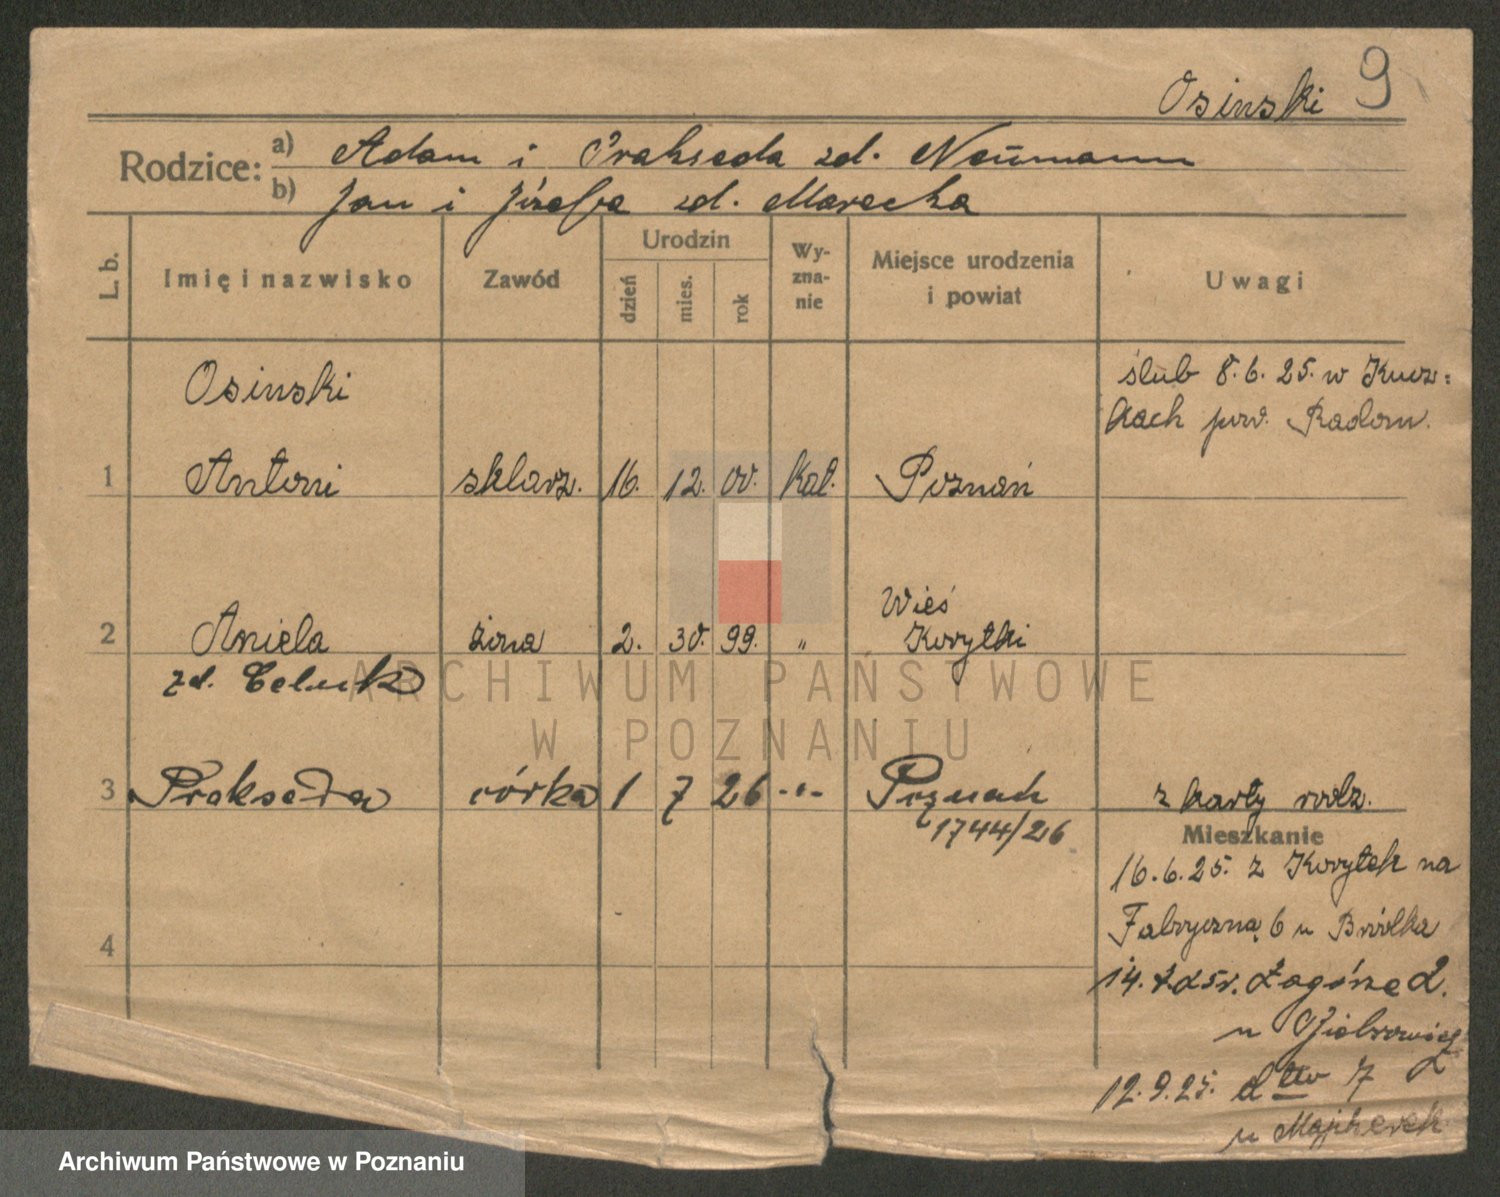 Osinski 9
Rodzice: a) Adam i Prakseda zd. Neumann
b) Jan i Józefa zd. Marecka
L. b. Imię i nazwisko Zawód Urodzin dzień mies. rok Wy-zna-nie Miejsce urodzenia i powiat Uwagi
Osinski
ślub 8.6.25. w Kucz=
kach pow. Radom.
1 Antoni szklarz. 16. 12. 00. kat. Poznań
Wieś
2 Aniela żona 2. 30. 99. " Korytki
zd.
3 Prakseda córka 1 7 26 -"- Poznań z karty rodz.
1744/26
Mieszkanie
16.6.25. z Korytek na
Fabryczną 6 u
4
14. Zagórze 2.
u
12.9.25. dtto 7
u Majcherek
ARCHIWUM PAŃSTWOWE
W POZNANIU
Archiwum Państwowe w Poznaniu